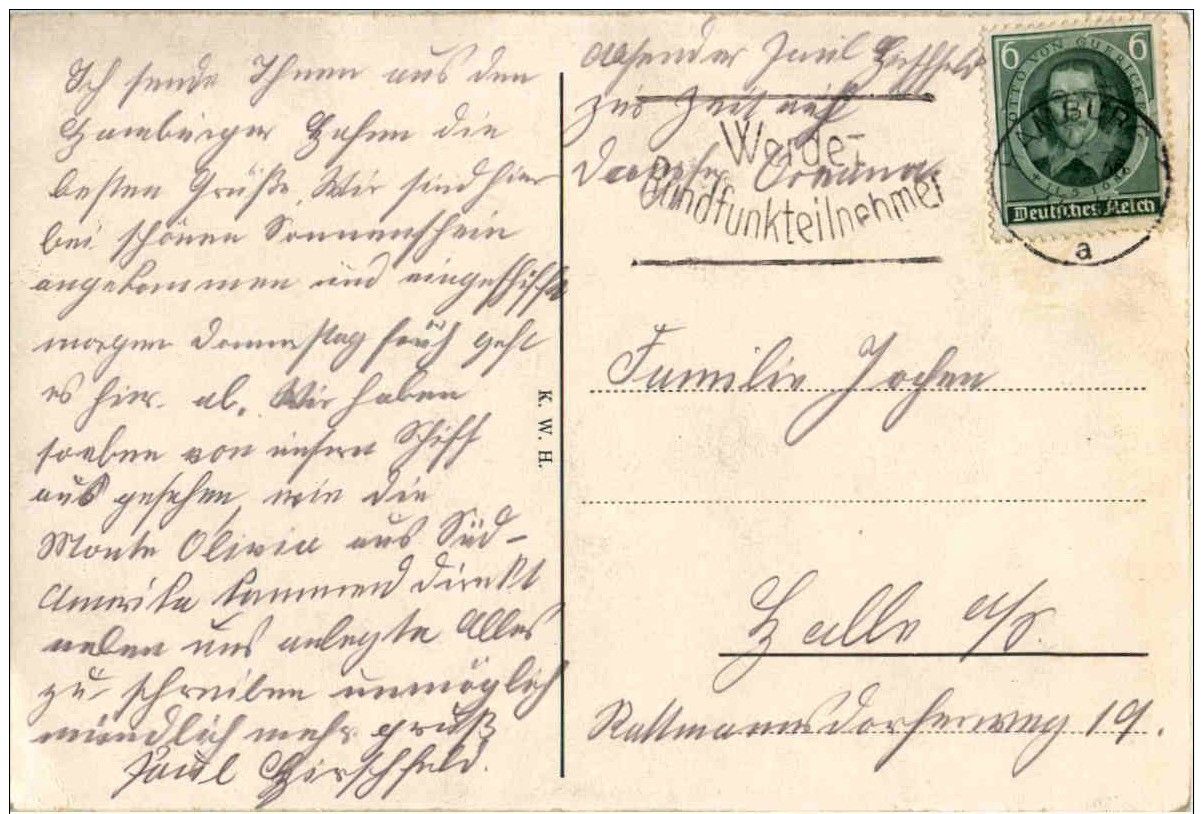 Ich sende Ihnen aus den
Hamburger Hafen die
besten Grüße. Wir sind hier
bei schönen Sonnenschein
angekommen und eingeschifft
morgen Donnerstag früh geht
es hier ab. Wir haben
soeben von unsern Schiff
aus gesehen, wie die
Monte Olivia aus Süd-
Amerika kommend direkt
neben uns anlegte Alles
zu schreiben unmöglich
mündlich mehr gruß
Paul Hirschfeld.
K. W. H.
Absender Paul Hirschfeld
zur Zeit auf
Dampfer Oceana
Werde
Rundfunkteilnehmer
6 OTTO VON GUERICKE 6
* 11. 5. 1686
Deutsches Reich
HAMBURG
a
Familie Jochen
Halle a/S.
Rattmannsdorferweg 19.